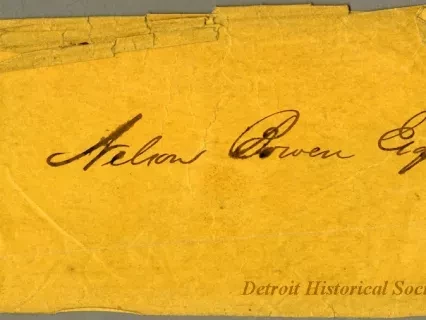 Nelson Bowen Esq
Detroit Historical Soci